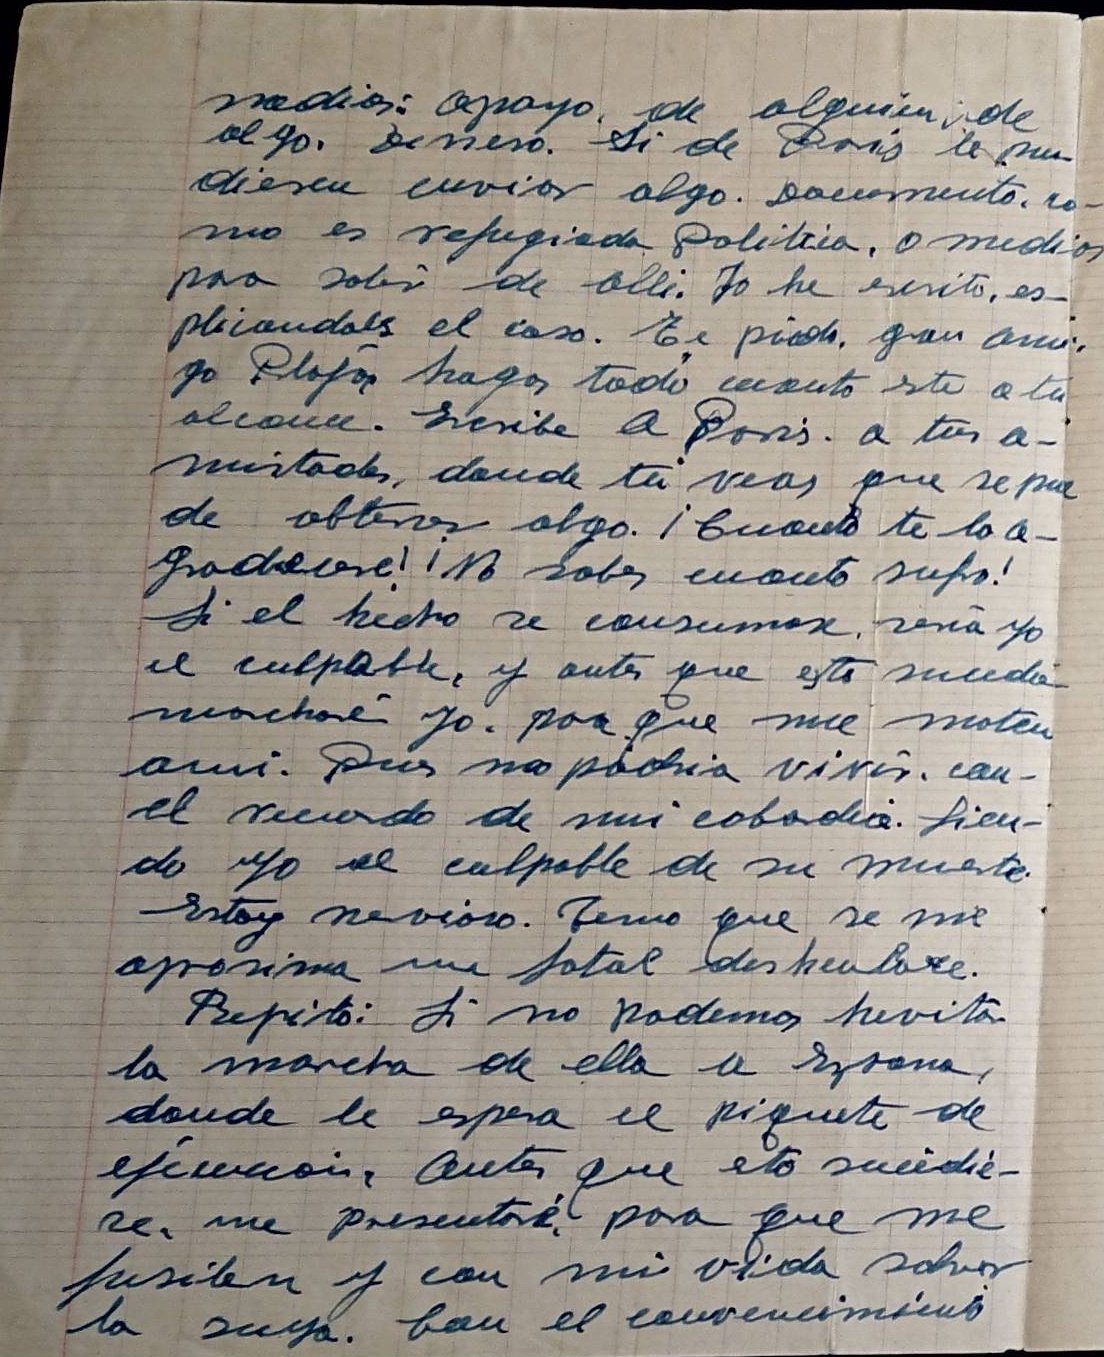 medios: apoyo, de alguien, de
algo. Dinero. Si de Paris le pu-
diesen enviar algo. Documento, co-
mo es refugiada Politica, o medios
para salir de alli. Yo he escrito, es-
plicandoles el caso. Te pido, gran ami-
go hagas todo cuanto este a tu
alcance. Escribe a Paris. a tus a-
mistades, donde tú veas que se pue
de obtener algo. ¡Cuanto te lo a-
gradecere! ¡No sabes cuanto sufro!
Si el hecho se consumase, seria yo
el culpable, y antes que esto suceda
marcharé yo. para que me maten
ami. Pues no podria vivir. con
el recuerdo de mi cobardia. Sien-
do yo el culpable de su muerte.
Estoy nervioso. Temo que se me
aprosima un fatal deshenlaze.
Repito: Si no podemos hevitar
la marcha de ella a España,
donde le espera el piquete de
ejecucion, Antes que esto sucedie-
se, me presentaré, para que me
fusilen y con mi vida salvar
la suya. Con el convencimiento